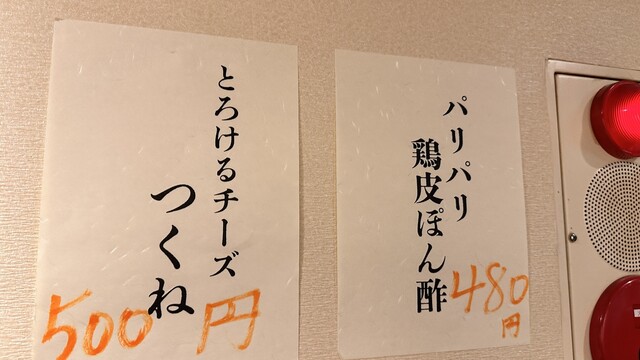 パリパリ
鶏皮ぽん酢
480円
とろけるチーズ
つくね
500円